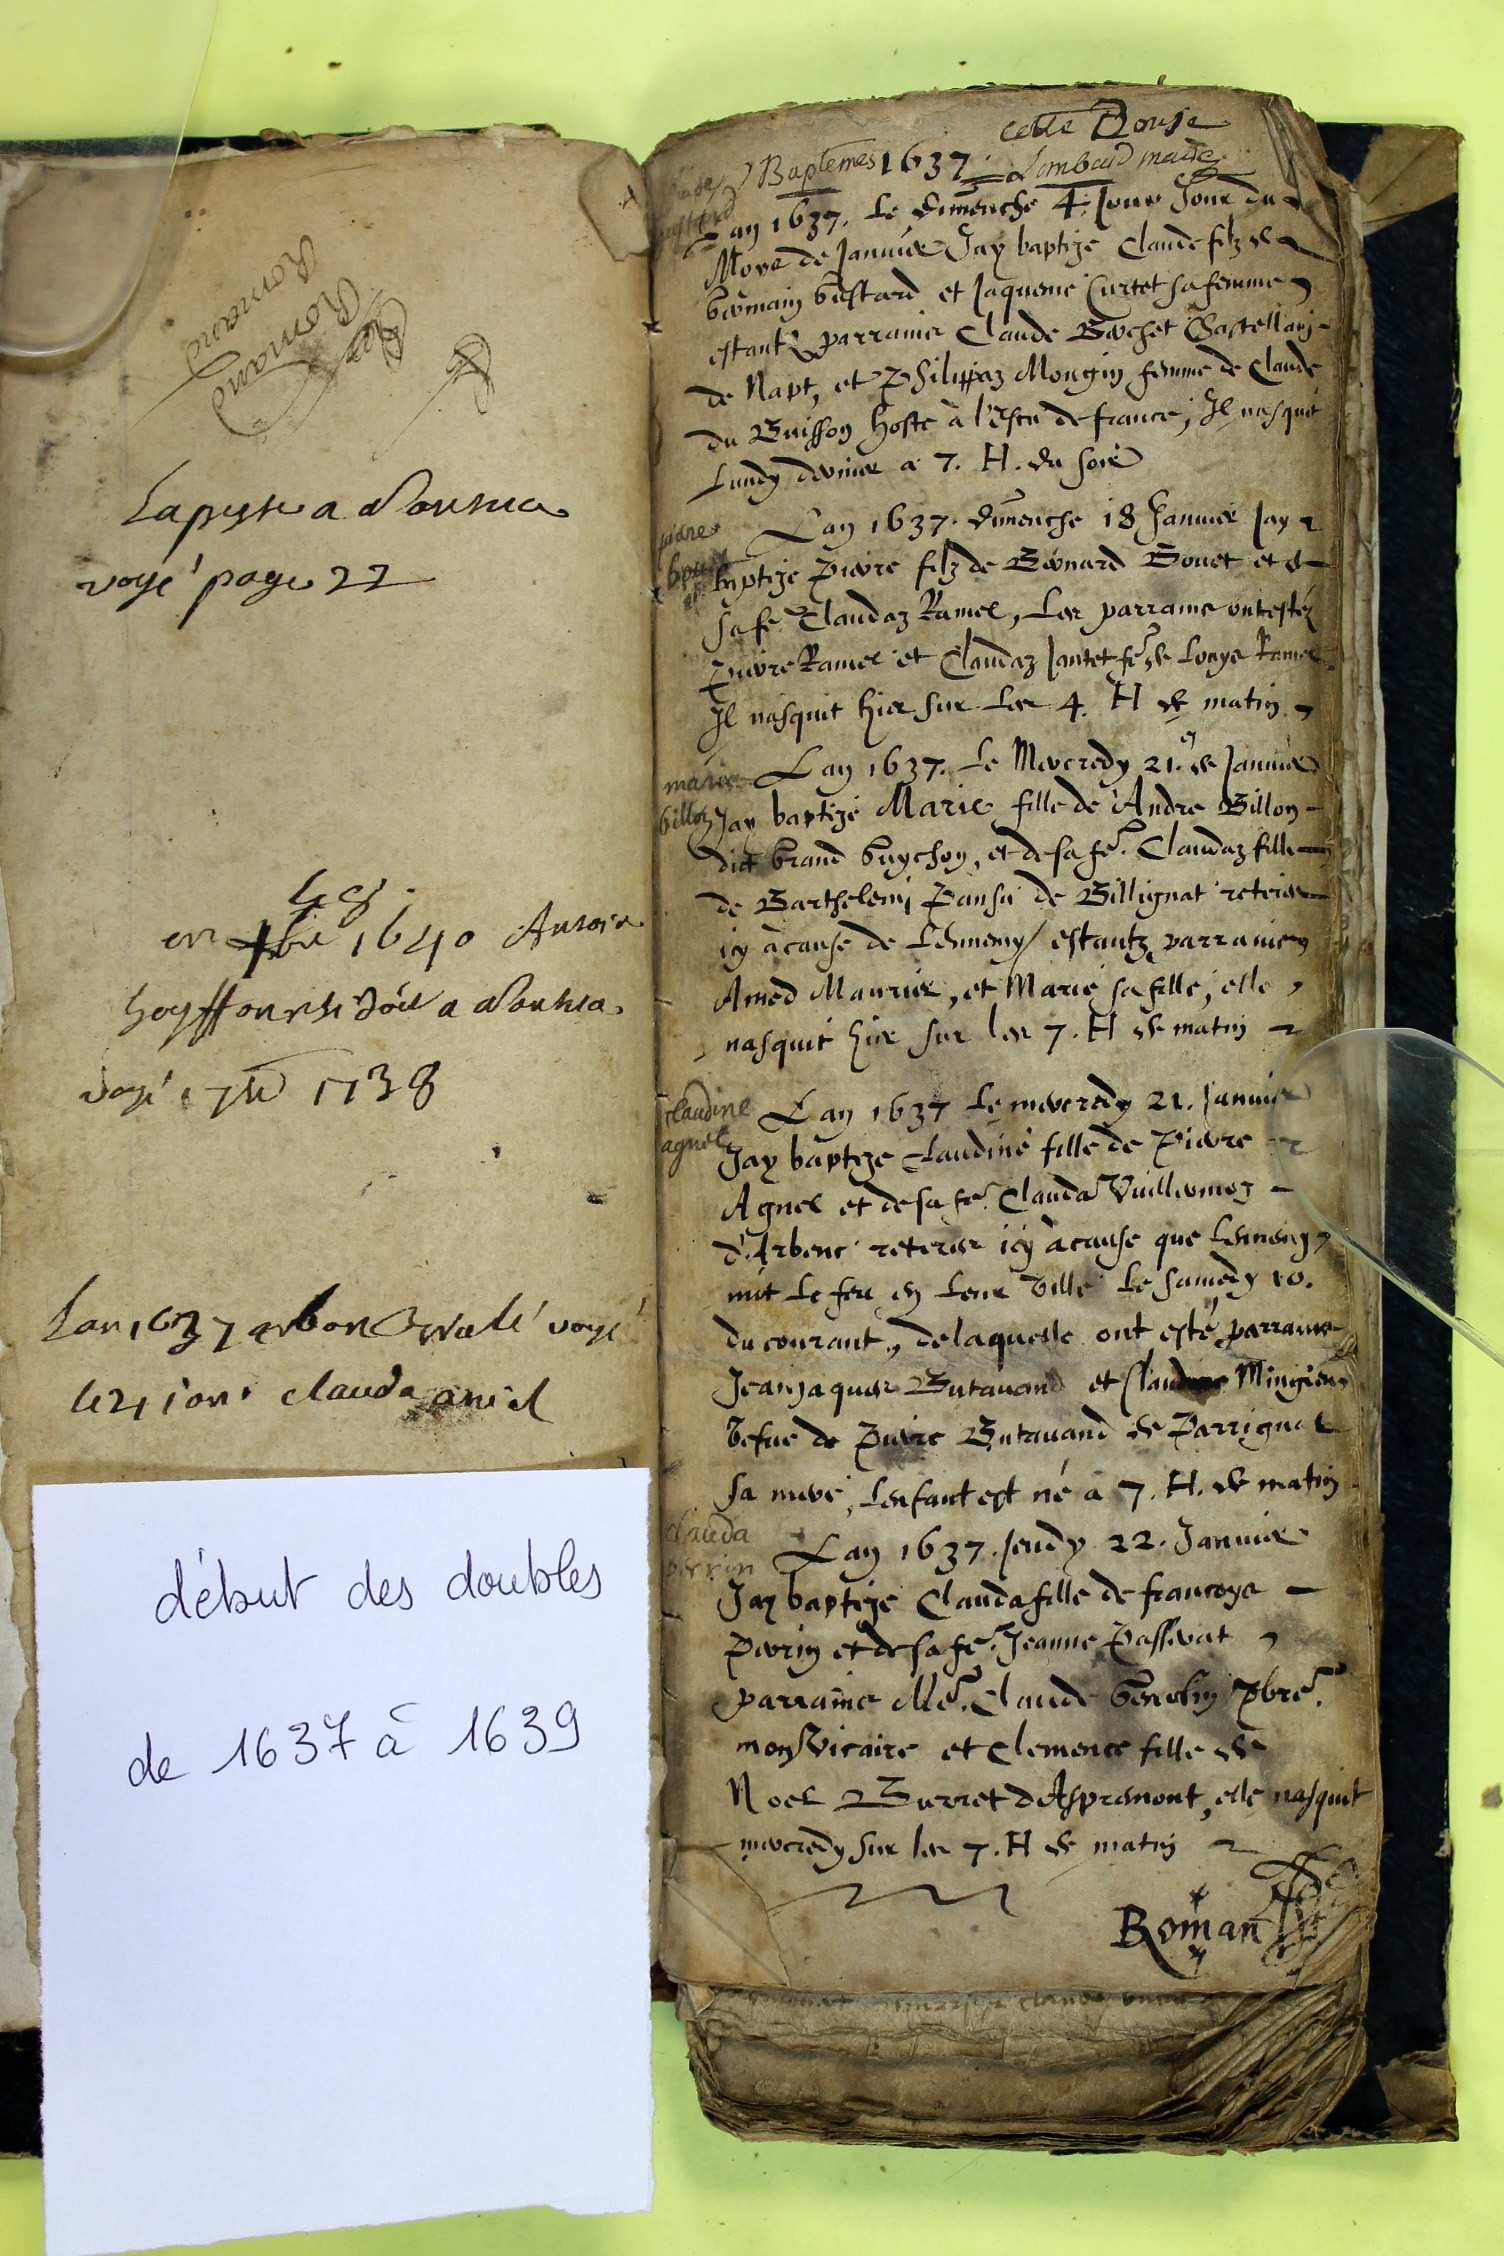 Romand
Romand
voyé page 22
1640
voyé 1738
Lan 1637 voyé
le 21 clauda
début des doubles
de 1637 à 1639
cette Donse
Baptemes 1637. Lombard
Lan 1637. Le dimenche 4. Jour du
Moys de Januier Jay baptizé Claude filz de
Germain Gustard et Jaqueme Curtet sa femme
estantz parrains Claude Bochet Chastellain
de Napt, et Philippaz Mongin femme de Claude
du Buisson hoste à l'escu de france; Il nasquit
Lundy dernier a 7. H. du soir
Lan 1637. dimenche 18 Januier Jay
baptize Pierre filz de Bernard Bouet et de
sa fe Claudaz Ramel, Les parrains ont estéz
Pierre Ramel et Claudaz Jantet fe de Louys Ramel
Il nasquit hier sur les 4. H de matin
marie
billon
Lan 1637. Le Mercredy 21. de Januier
Jay baptizé Marie fille de Andre Billon
dict Grand Guychon, et de sa fe. Claudaz fille
de Barthelemy Pansu de Billignat retirés
icy à cause de Lennemy estantz parrains
Amed Maurier, et Marie sa fille, elle
nasquit hier sur les 7. H de matin
claudine
agnel
Lan 1637 Le mercredy 21. Januier
Jay baptize Claudine fille de Pierre
Agnel et de sa fe. Clauda Vuillermoz
d'Arbenc retirés icy à cause que Lennemy
mit Le feu en Leur Ville Le samedy 10.
du courant, de laquelle ont esté parrains
Jeanjaques Butauand et Mingien
Vefue de Pierre Butauand de Parrignat
sa mere, Lenfant est né a 7. H. de matin
clauda
perrin
Lan 1637. Jeudy 22. Januier
Jay baptizé Clauda fille de francoys
Perrin et de sa fe. Jeanne Passerat
parrains Mre. Claude Genolin Pbre.
mon Vicaire et Clemence fille de
Noel Burret d'Aspremont, elle nasquit
mercredy sur les 7. H de matin
Roman